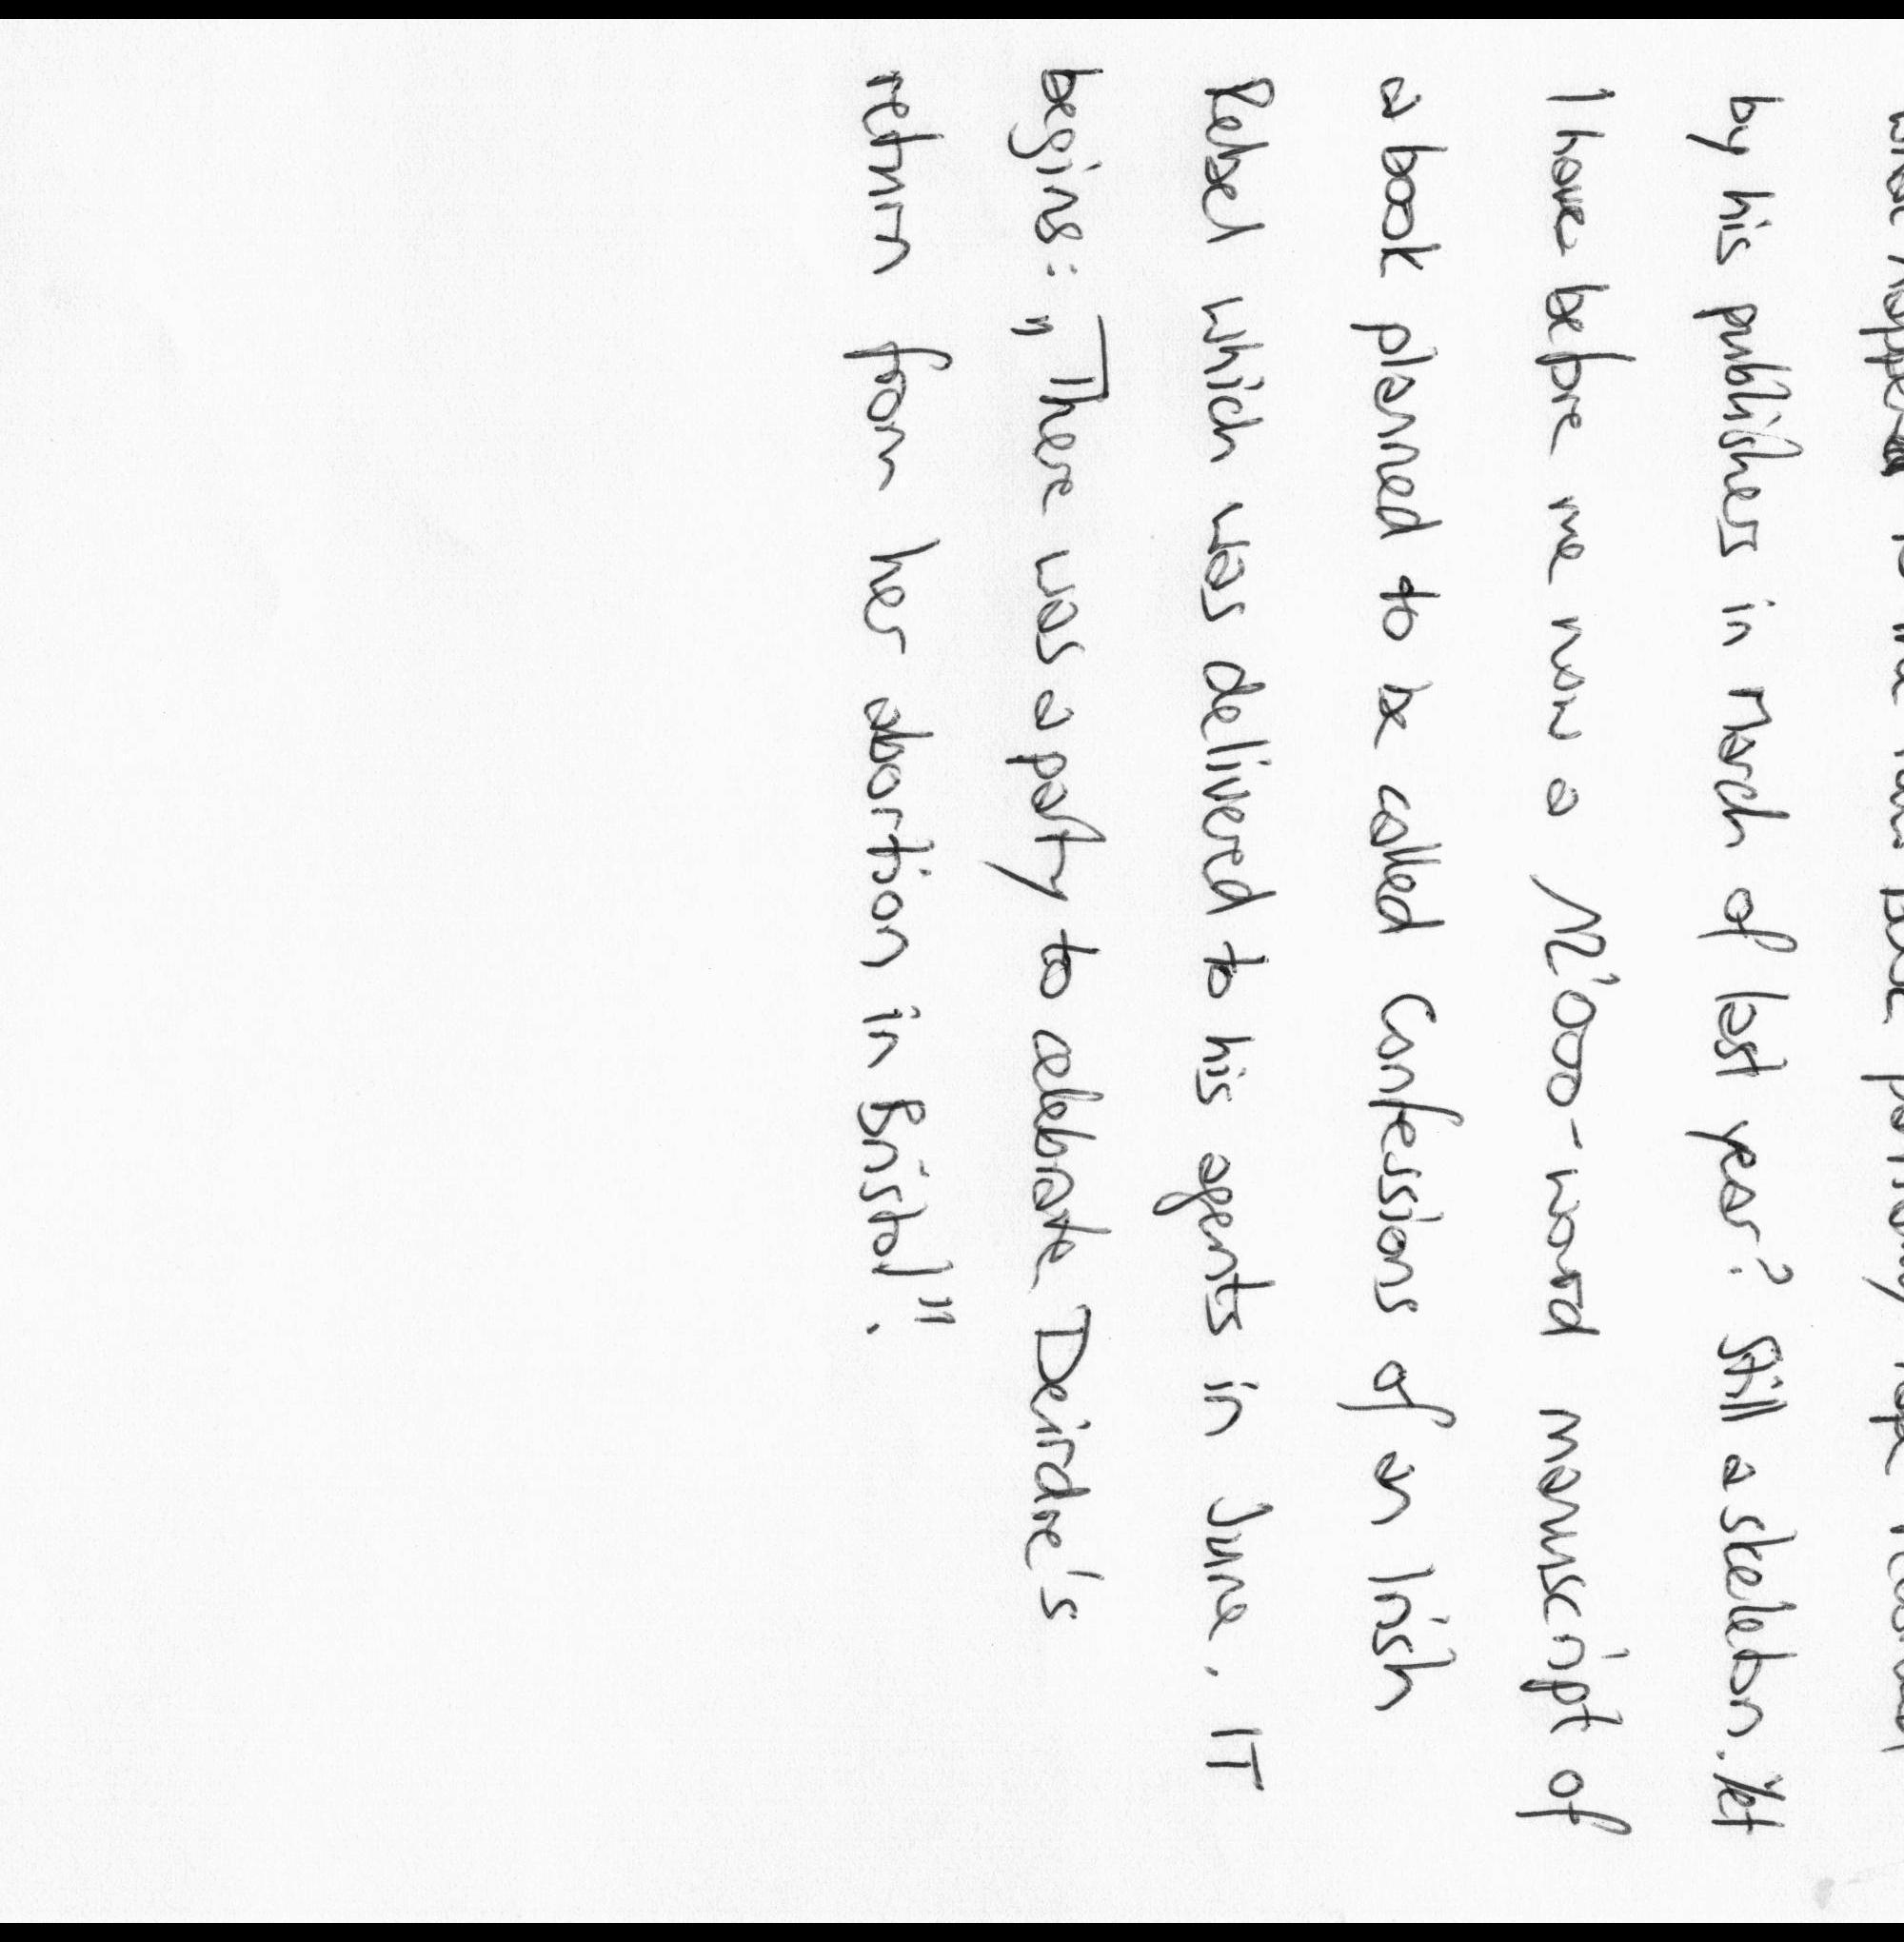 what happened to the
by his publishers in March of last year? Still a skeleton. Yet
I have before me now a 12'000-word manuscript of
a book planned to be called Confessions of an Irish
Rebel which was delivered to his agents in June. IT
begins: "There was a paty to celebrate Deirdre's
return from her abortion in Bristol".